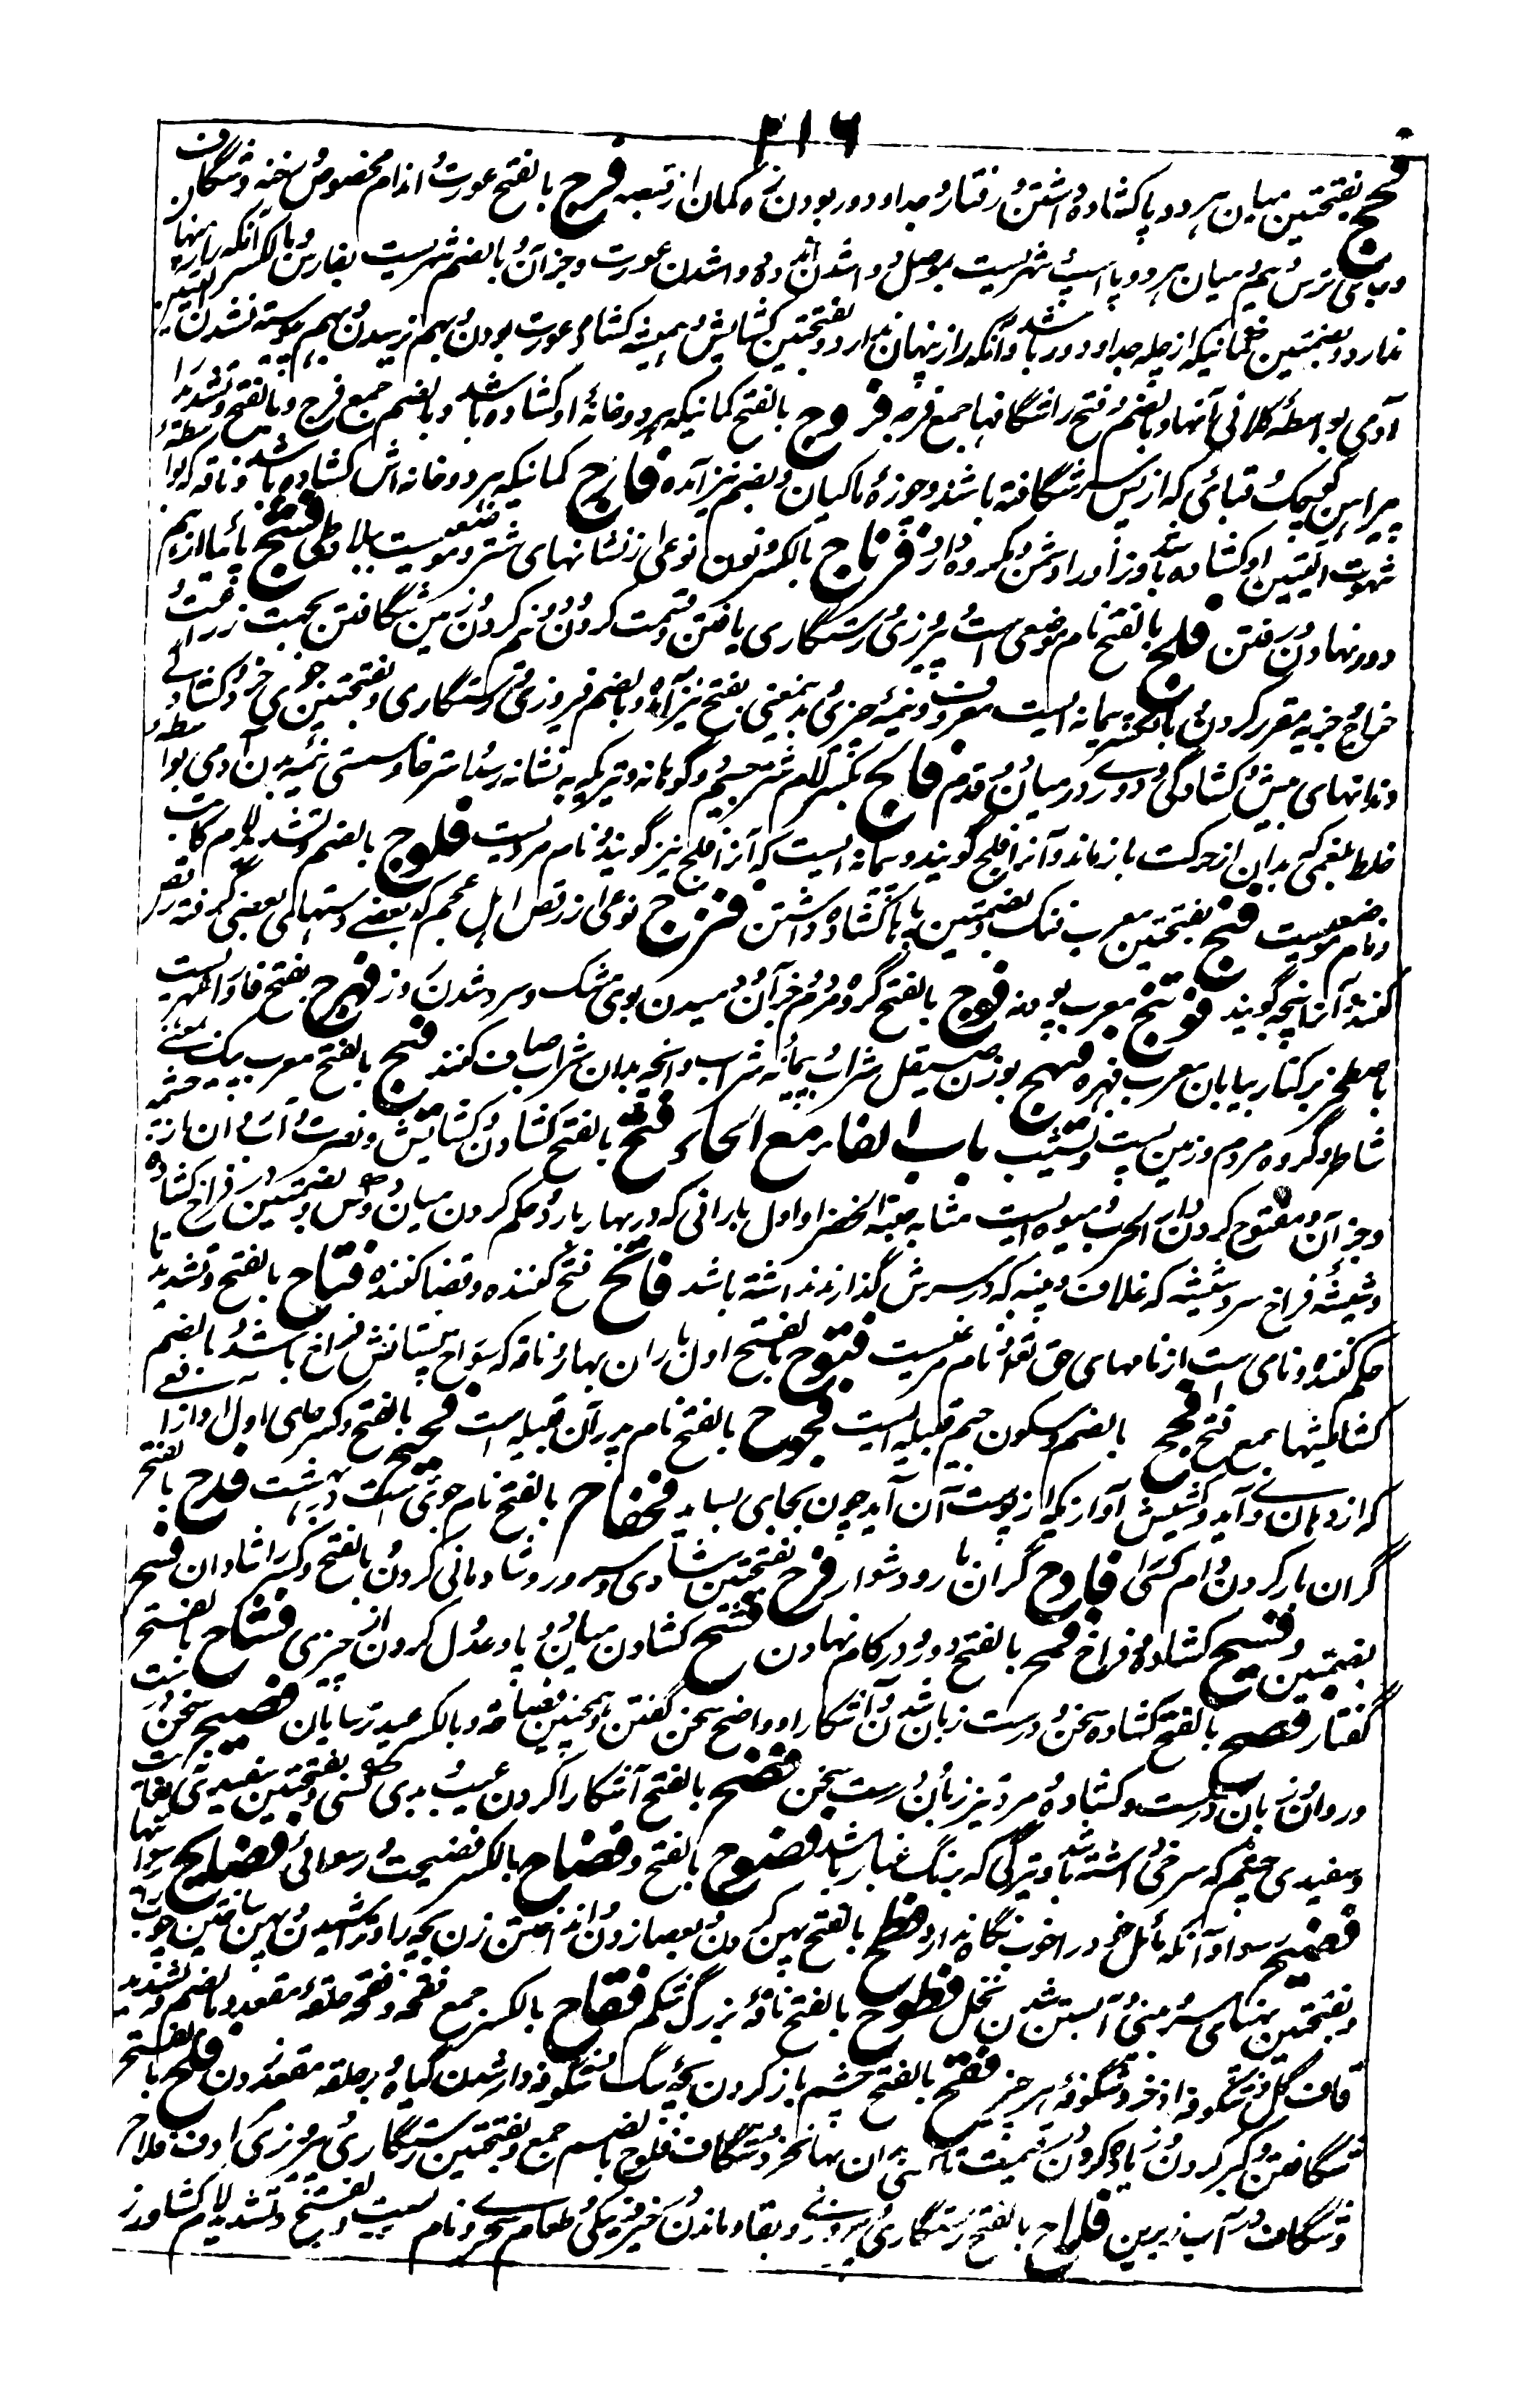 ۳۱۶
فجج بفتحتین میان هر دو پا کشاده داشتن رفتار و جدا و دور بودن زه کمان از قبضه فرج بالفتح عورت و اندام مخصوص و رخنه و شگاف
و جای ترس و بیم و میان هر دو پا اسپ و شهریست بموصل و وا شدن اندوه و وا شدن عورت و جز آن و بالضم شهریست بفارس و بالکسر آنکه راز پنهان
ندارد و بضمتین کمانیکه از چله جدا و دور باشد و آنکه راز پنهان ندارد و بفتحتین کشایش و همیشه کشاده عورت بودن و بهم نرسیدن و بهم پیوسته نشدن
آدمی بواسطهٔ کلانی آنها و بالضم و فتح را شگافها جمع فرجه فروج بالفتح کمانیکه هر دو خانهٔ او کشاده باشد و بالضم جمع فرج و بالفتح و تشدید را
پیراهن کوچک و قبائی که از پس شگافته باشد و جوزهٔ ماکیان و بضم نیز آمده فارج کمانیکه هر دو خانه اش کشاده باشد و ناقه که بواسطهٔ
فرتاج بالکسر و نون نوعی از نشانهای شتر و موضعیست ببلاد طی فشج پایها از هم
دور نهادن و رفتن فلج بالفتح نام موضعی است و پیروزی و رستگاری یافتن و قسمت کردن و دو نیم کردن و زمین شگافتن بجهت زراعت و
خراج و جزیه مقرر کردن و بالکسر پیمانه ایست معروف و نیمهٔ چیزی و بدینمعنی بفتح نیز آمده و بالضم فیروزی و رستگاری و بفتحتین جوی خرد و کشادگی
دندانهای پیش و کشادگی و دوری در میان دو قدم فالج بکسر لام شتر جسیم و دو کوهانه و تیریکه به نشانه رسد و استرخا و سستی نیمهٔ بدن آدمی بواسطهٔ
خلط بلغمی که بدان از حرکت باز ماند و آنرا فلج گویند و پیمانه ایست که آنرا فلج نیز گویند و نام مردیست فلوج بالضم و تشدید لام کاتب
و نام موضعیست فنج بفتحتین معرب فنک و بضمتین پا کشاده داشتن فنزج نوعی از رقص اهل عجم که بعضی دستهای بعضی گرفته رقص
کنند و آنرا پنجه گویند فوتنج معرب پودنه فوج بالفتح گروه مردم و جز آن و دمیدن بوی مشک و سرد شدن روز فهرج بفتح فا و را شهریست
باصطخر بر کنار بیابان معرب فهره فیهج بوزن صیقل شراب و پیمانهٔ شراب و آنچه بدان شراب صاف کنند فیج بالفتح معرب پیک بمعنی
شاطر و گروه مردم و زمین پست و نشیب باب الفاء مع الحاء فتح بالفتح کشادن و کشایش و نصرت و آب روان از چشمه
و جز آن و مفتوح کردن دار الحرب و میوه ایست مشابه حبة الخضرا و اول بارانی که در بهار بارد و حکم کردن میان دو کس و بضمتین در فراخ کشاده
و شیشهٔ فراخ سر و شیشه که غلاف و پنبه که در سرش گذارند نداشته باشد فاتح فتح کننده و قضا کننده فتاح بالفتح و تشدید تا
حکم کننده و نامی است از نامهای حق تعالی و نام مرغیست فتوح بالفتح اول باران بهار و ناقه که سوراخ پستانش فراخ باشد و بالضم
کشایشها جمع فتح فجح بالضم و سکون جیم قبیله ایست فجوح بالفتح نام پدر آن قبیله است فحیح بالفتح و کسر حای اول آواز افعی
که از دهانش آید و کشیش آوازیکه از پوست آن آید چون بجای بساید فحفاح بالفتح نام جوی است در بهشت فدح بالفتح
گران بار کردن وام کسی را فادح گران بار و دشوار فرح بفتحتین شادی و سرور و شادمانی کردن و بالفتح و کسر را شادان فسح
بضمتین و فسیح کشاده و فراخ فسح بالفتح دور دور گام نهادن فشح کشادن میان دو پا و عدول کردن از چیزی فشاح بالفتح
گفتار فصح بالفتح کشاده سخن و درست زبان شدن و آشکارا و واضح سخن گفتن و همچنین فصاحة و بالکسر عید ترسایان فصیح سخن درست
و روان زبان درست و کشاده و مرد تیز زبان درست سخن فضح بالفتح آشکارا کردن عیب و بدی کسی و بفتحتین سفیدی
و سفیدی چشم که سرخی داشته باشد و تیرگی که برنگ غبار باشد فضوح بالفتح و فضاح بالکسر فضیحت و رسوائی فضایح رسوائیها
فضیح رسوا و آنکه مال خود را خوب نگاه ندارد فطح بالفتح پهن کردن و بعصا زدن و انداختن زن بچه را و تراشیدن و پهن ساختن چوب
و بفتحتین پهنای سر و بینی و آبستن شدن نخل فطوح بالفتح ناقهٔ بزرگ شکم فقاح بالکسر جمع فقحه و فقحه حلقهٔ مقعد و بالضم و تشدید
قاف گل و شکوفه اذخر و شگوفهٔ هر چیز فقح بالفتح چشم باز کردن بچهٔ سگ و شگوفه دار شدن گیاه و بر حلقهٔ مقعد زدن فلح بالفتح
شگافتن و مکر کردن و زیاده کردن قیمت تا کسی بدان بها نخرد و شگاف فلوح بالضم جمع و بفتحتین رستگاری و پیروزی مرادف فلاح
و شگاف در لب زیرین فلاح بالفتح رستگاری و پیروزی و بقا و ماندن در خیر و نیکی و طعام سحر و نام کسیست و بفتح و تشدید لام کشاورز